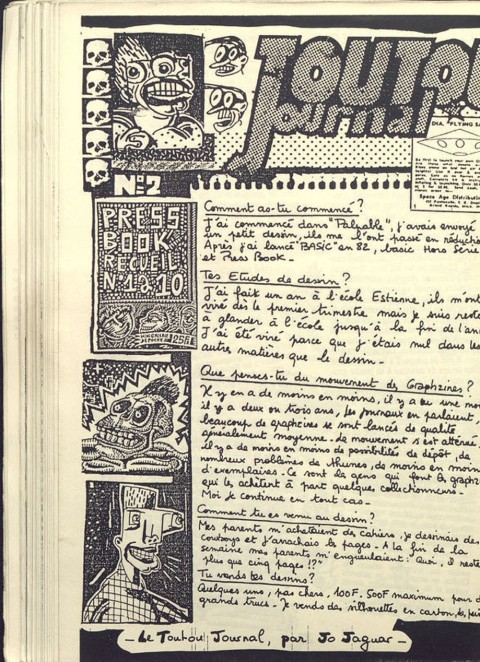 TOUTOU
Journal
DIA. "FLYING SA
Space Age Distributin
N:2
PRESS
BOOK
RECUEIL
N.1 à 10
25F
Comment as-tu commencé ?
J'ai commencé dans "Palpable", j'avais envoyé
un petit dessin, ils me l'ont passé en réductio
Après j'ai lancé "BASIC" en 82, basic Hors Serie
et Press Book.
Tes Etudes de dessin ?
J'ai fait un an à l'école Estienne, ils m'ont
viré dès le premier trimestre mais je suis resté
à glander à l'école jusqu'à la fin de l'ann
J'ai été viré parce que j'étais nul dans les
autres matières que le dessin.
Que penses-tu du mouvement des Graphzines ?
Il y en a de moins en moins, il y a eu une mo
il y a deux ou trois ans, les journaux en parlaient,
beaucoup de graphzines se sont lancés de qualité
généralement moyenne. Le mouvement s'est atténué,
il y a de moins en moins de possibilités de dépôt, de
nombreux problèmes de thunes, de moins en moins
d'exemplaires. Ce sont les gens qui font les graphz
qui les achètent à part quelques collectionneurs.
Moi je continue en tout cas.
Comment tu es venu au dessin ?
Mes parents m'achetaient des cahiers, je dessinais des
cowboys et j'arrachais les pages. A la fin de la
semaine mes parents m'engueulaient : Quoi, il reste
plus que cinq pages !?"
Tu vends tes dessins ?
Quelques uns, pas chers, 100F. 500F maximum pour d
grands trucs. Je vends des silhouettes en carton,
- Le Toutou Journal, par Jo Jaguar -